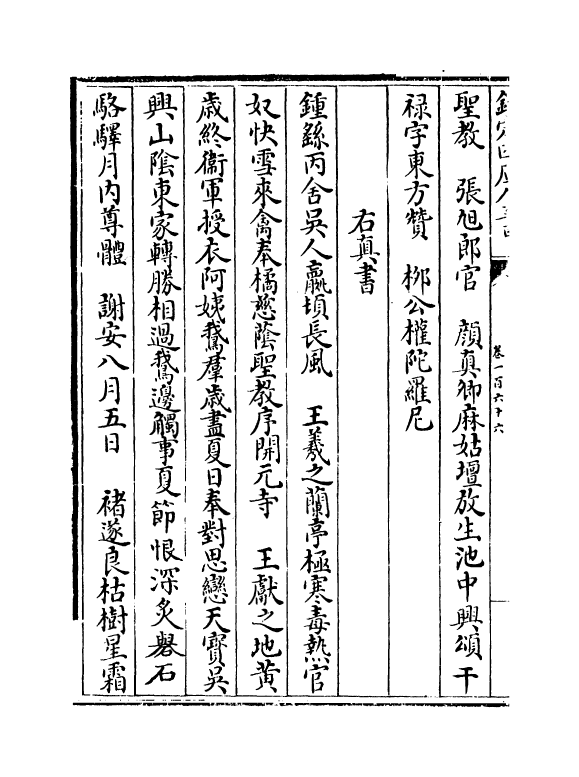 卷一百六十六
聖教　張旭郎官　顔真卿麻姑壇放生池中興頌干
禄字東方贊　栁公權陀羅尼
右真書
鍾繇丙舍吳人羸頓長風　王羲之蘭亭極寒毒熱官
奴快雪來禽奉橘慈蔭聖教序開元寺　王獻之地黄
歳終衞軍授衣阿姨鵞羣歳盡夏日奉對思戀天寶吳
興山陰東家轉勝相過鵞邊觸事夏節恨深炙礜石
駱驛月内尊體　謝安八月五日　褚遂良枯樹星霜